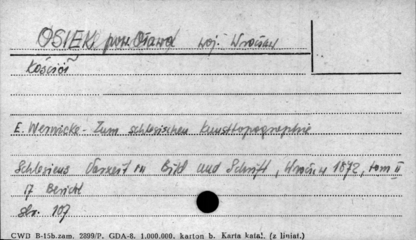 OSIEK, pow. Oława woj. Wrocław
Kościół
E. Wernicke - Zum schlesischen Kunsttopographie
Schlesiens Vorzeit in Bild und Schrift, Wrocław 1872, tom II
17 Bericht
str. 107
CWD B-15b.zam. 2899/P. GDA-8. 1.000.000. karton b. Karta katal. (z liniat.)